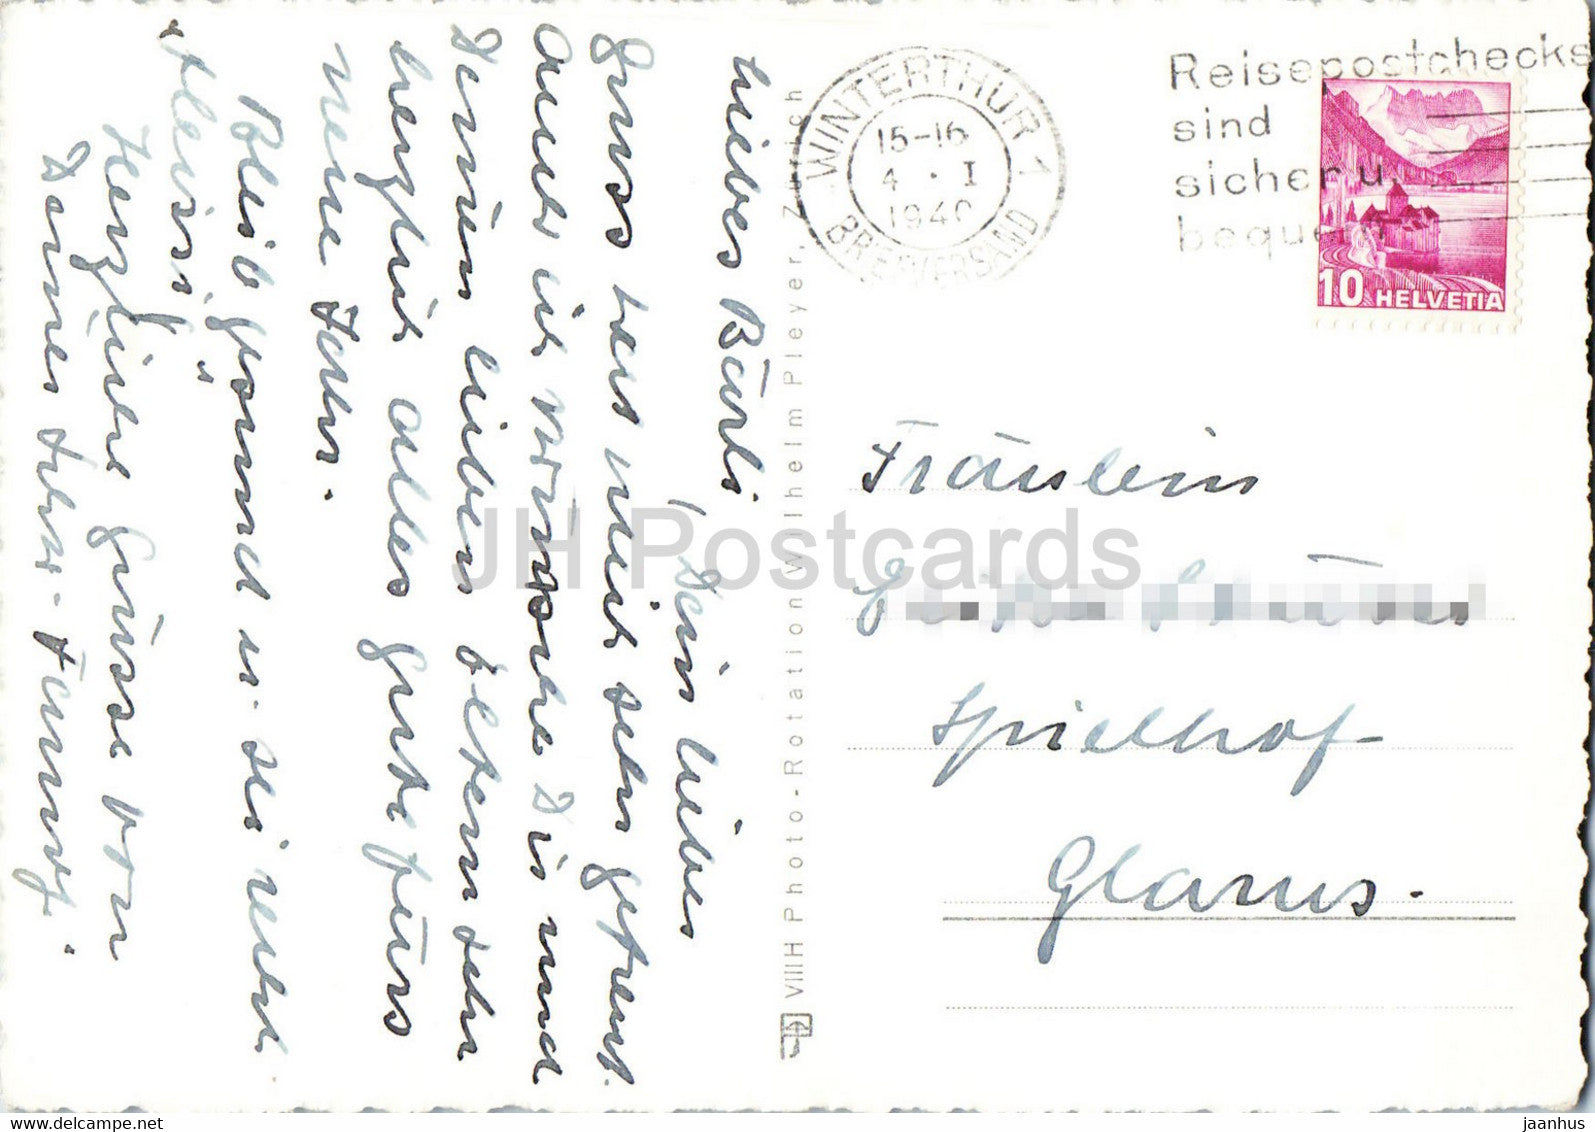 Liebes Bärbi,
Dein liebes
Gruss hat mich sehr gefreut.
Auch ich wünsche Dir und
Deinen lieben Eltern sehr
herzlich alles Gute fürs
neue Jahr.
Bleib gesund u. sei recht
"fleissig"
Herzliche Grüsse von
Deiner Lehr
VIIIH Photo-Rotation Wilhelm Pleyer, Zürich
WINTERTHUR 1
15-16
4 . I
1940
BRIEFVERSAND
Reisepostchecks
sind
sicher u.
bequem
10 HELVETIA
Fräulein
Spielhof
Glarus.
JH Postcards
HipPostcard.com
jaanhus